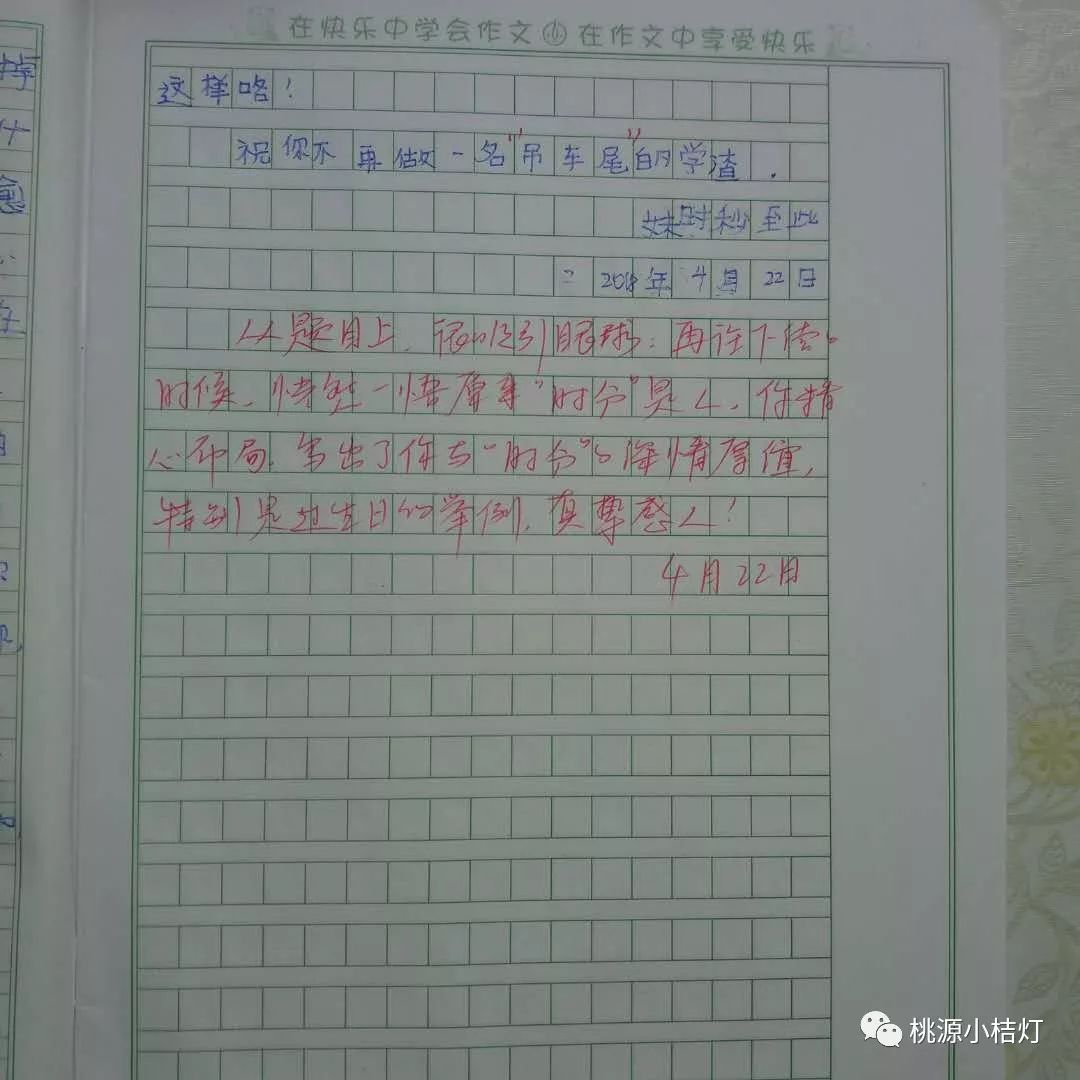 在快乐中学会作文 小 在作文中享受快乐
这样咯!
祝你不再做一名"吊车尾"的学渣.
妹时秒至此
2018年4月22日
从题目上,很吸引眼球;再往下读的
时候,恍然一悟原来"时分"是人,你精
心布局,写出了你与"时分"的深情厚谊,
特别是过生日的举例,真挚感人!
4月22日
桃源小桔灯